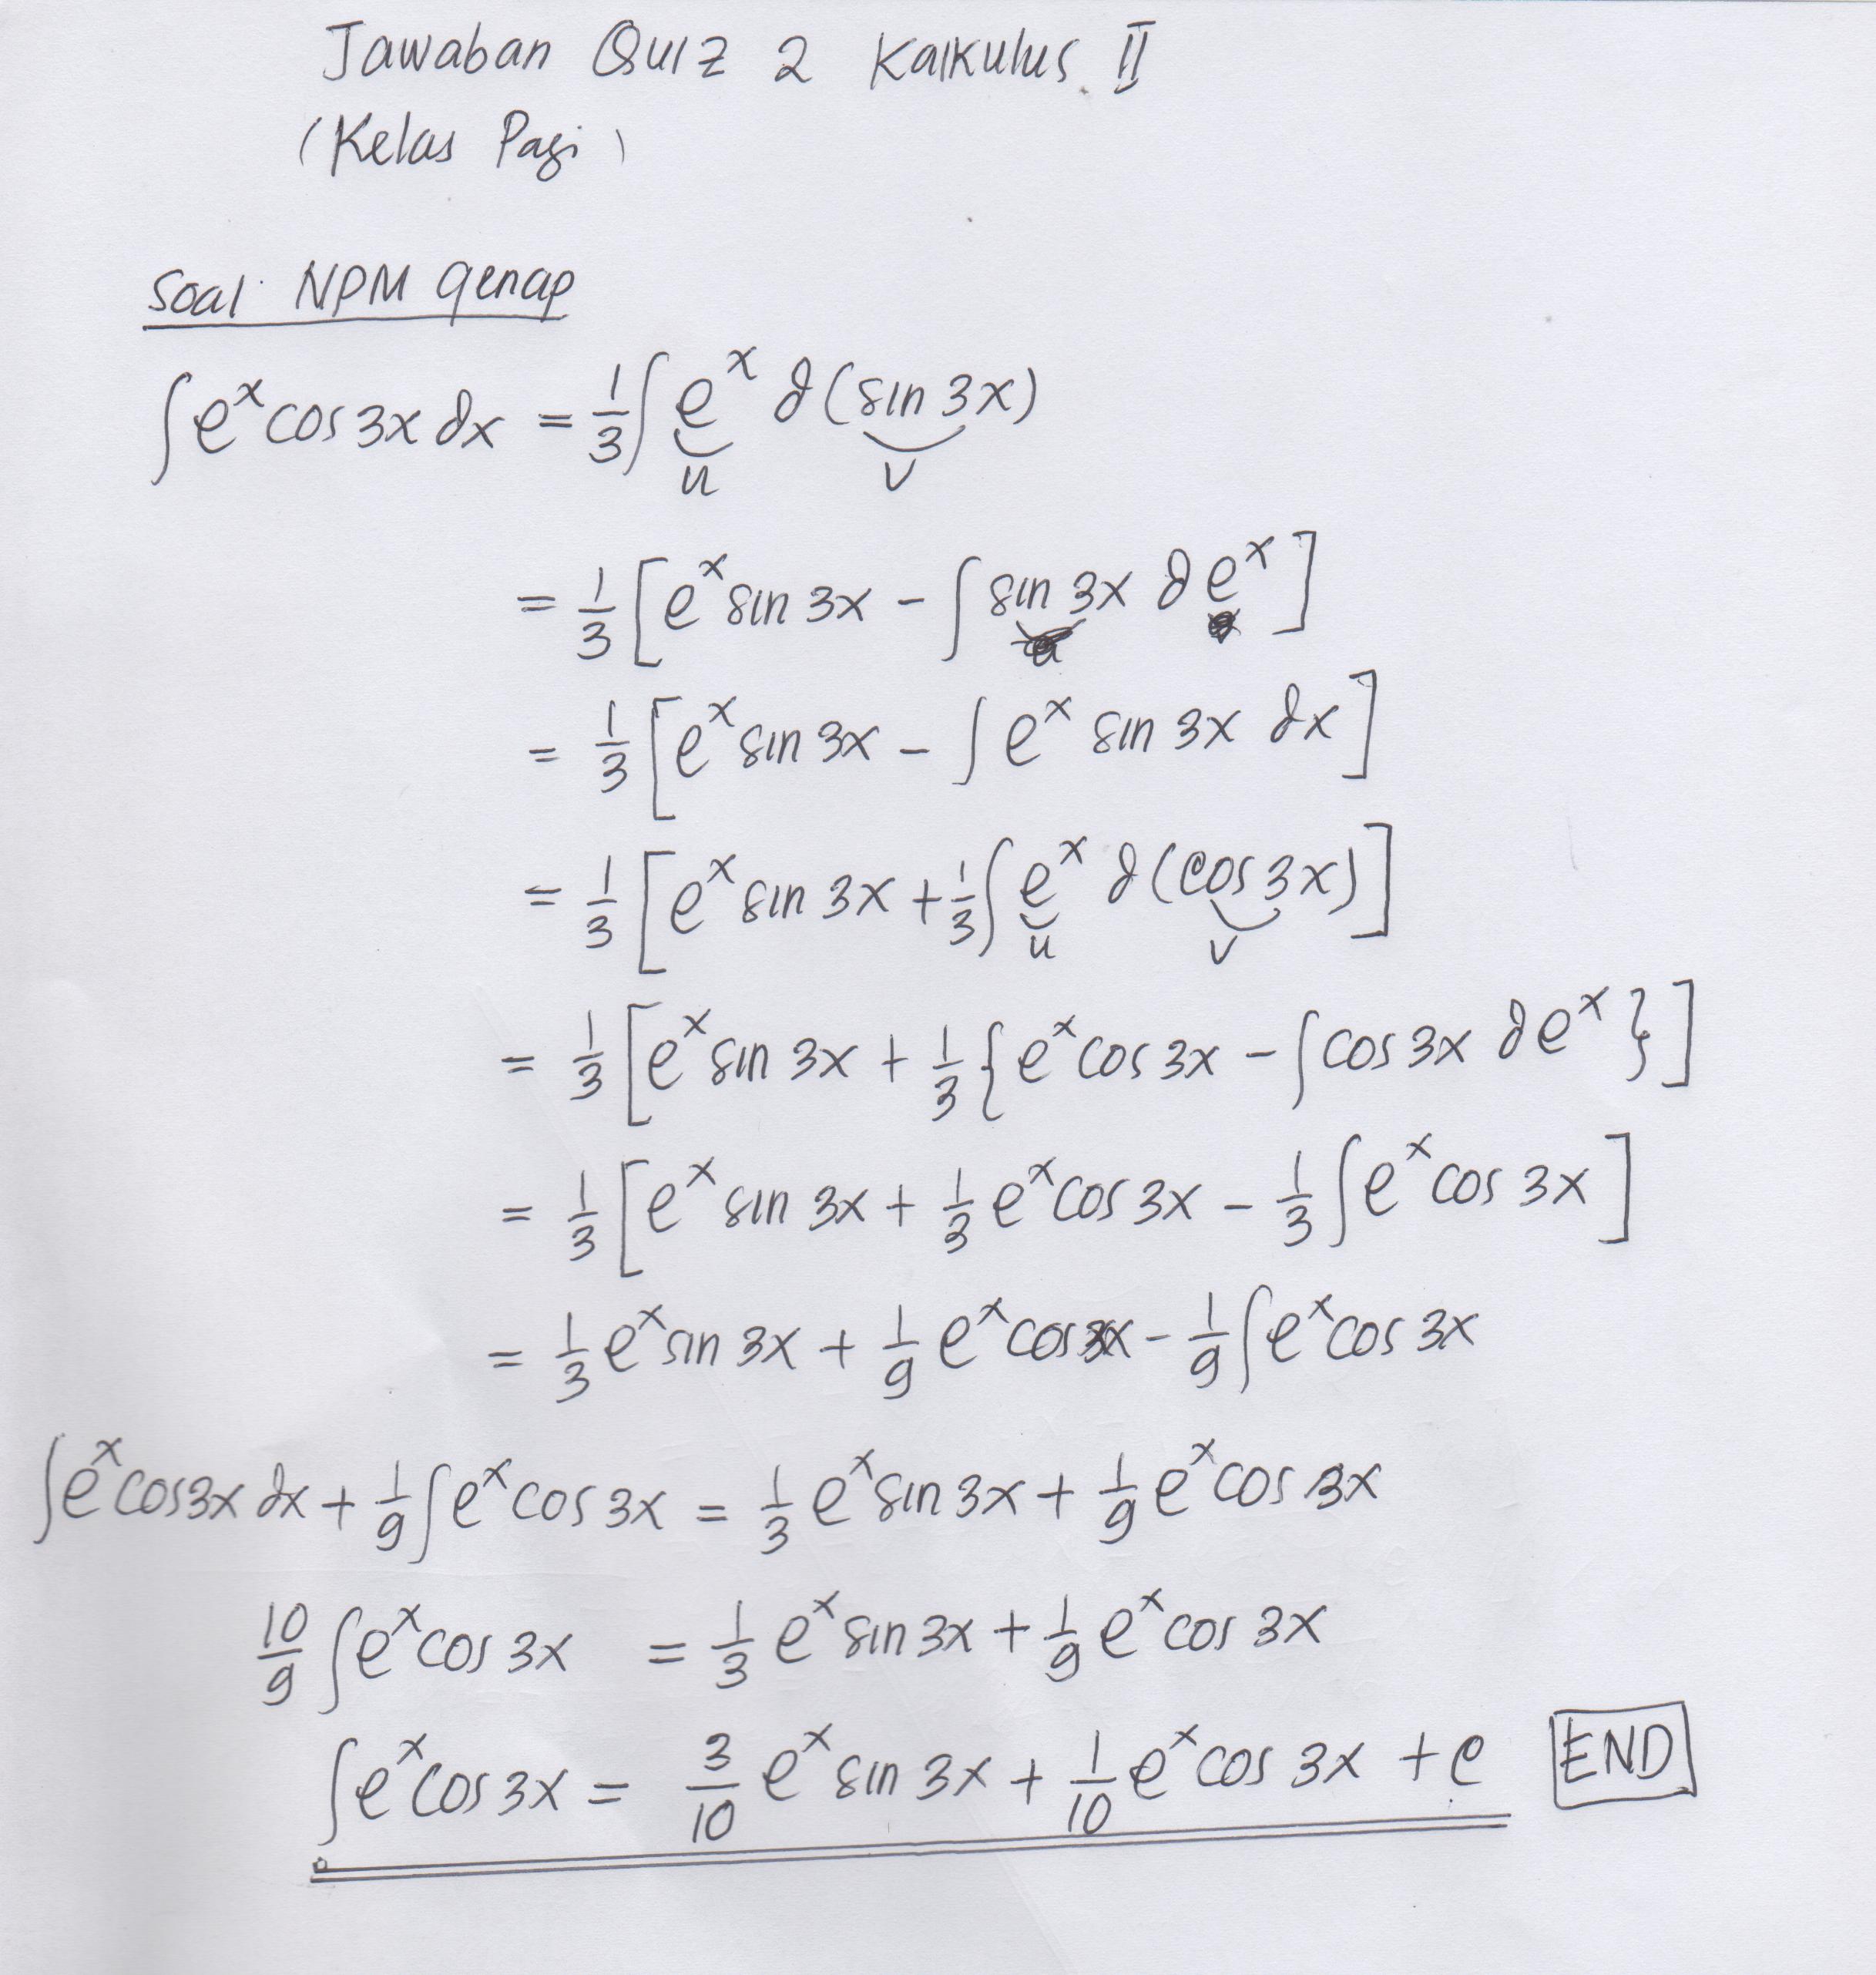 Jawaban Quiz 2 Kalkulus II
(Kelas Pagi)
Soal NPM genap
∫e^x cos 3x dx = 1/3 ∫ e^x d(sin 3x)
u v
= 1/3 [e^x sin 3x - ∫ sin 3x d e^x]
= 1/3 [e^x sin 3x - ∫ e^x sin 3x dx]
= 1/3 [e^x sin 3x + 1/3 ∫ e^x d(cos 3x)]
u v
= 1/3 [e^x sin 3x + 1/3 {e^x cos 3x - ∫ cos 3x d e^x}]
= 1/3 [e^x sin 3x + 1/3 e^x cos 3x - 1/3 ∫ e^x cos 3x]
= 1/3 e^x sin 3x + 1/9 e^x cos 3x - 1/9 ∫ e^x cos 3x
∫e^x cos 3x dx + 1/9 ∫e^x cos 3x = 1/3 e^x sin 3x + 1/9 e^x cos 3x
10/9 ∫e^x cos 3x = 1/3 e^x sin 3x + 1/9 e^x cos 3x
∫e^x cos 3x = 3/10 e^x sin 3x + 1/10 e^x cos 3x + c END